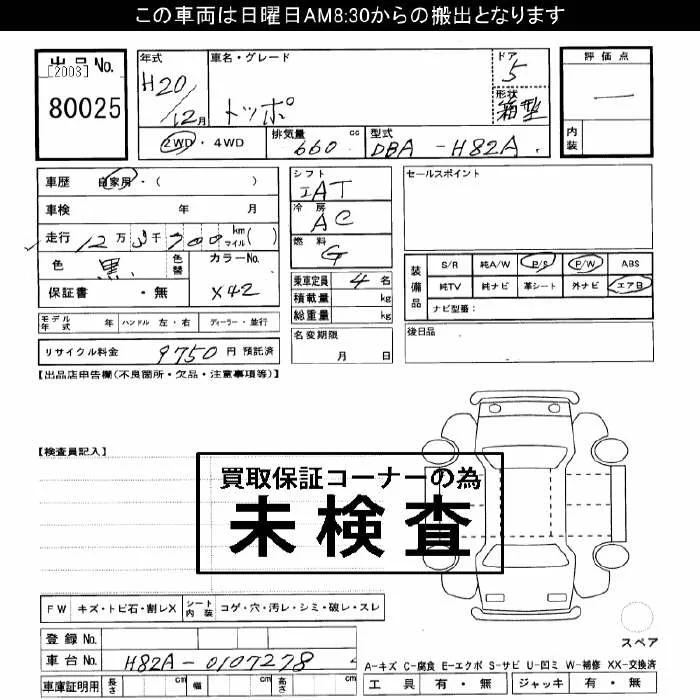 この車両は日曜日AM8:30からの搬出となります
出品No. [2003] 80025
年式 H20/12月
車名・グレード トッポ
ドア 5
形状 箱型
評価点 —
内装
2WD ・ 4WD
排気量 660 cc
型式 DBA - H82A
車歴 自家用・( )
車検 年 月
走行 12万3千700 km マイル( )
色 黒 色替
カラーNo. X42
保証書 ・ 無
モデル年式 年 ハンドル 左・右 ディーラー・並行
リサイクル料金 9750 円 預託済
シフト IAT
冷房 AC
燃料 G
乗車定員 4 名
積載量 kg
総重量 kg
名変期限 月 日
セールスポイント
装備品
S/R 純A/W P/S P/W ABS
純TV 純ナビ 革シート 外ナビ エアB
ナビ型番:
後日品
【出品店申告欄(不良個所・欠品・注意事項等)】
【検査員記入】
買取保証コーナーの為
未検査
FW キズ・トビ石・割レX シート内装 コゲ・穴・汚レ・シミ・破レ・スレ
登録No.
車台No. H82A-0107278
車庫証明用 長さ 幅 高さ
スペア
A-キズ C-腐食 E-エクボ S-サビ U-凹ミ W-補修 XX-交換済
工具 有・無 ジャッキ 有・無